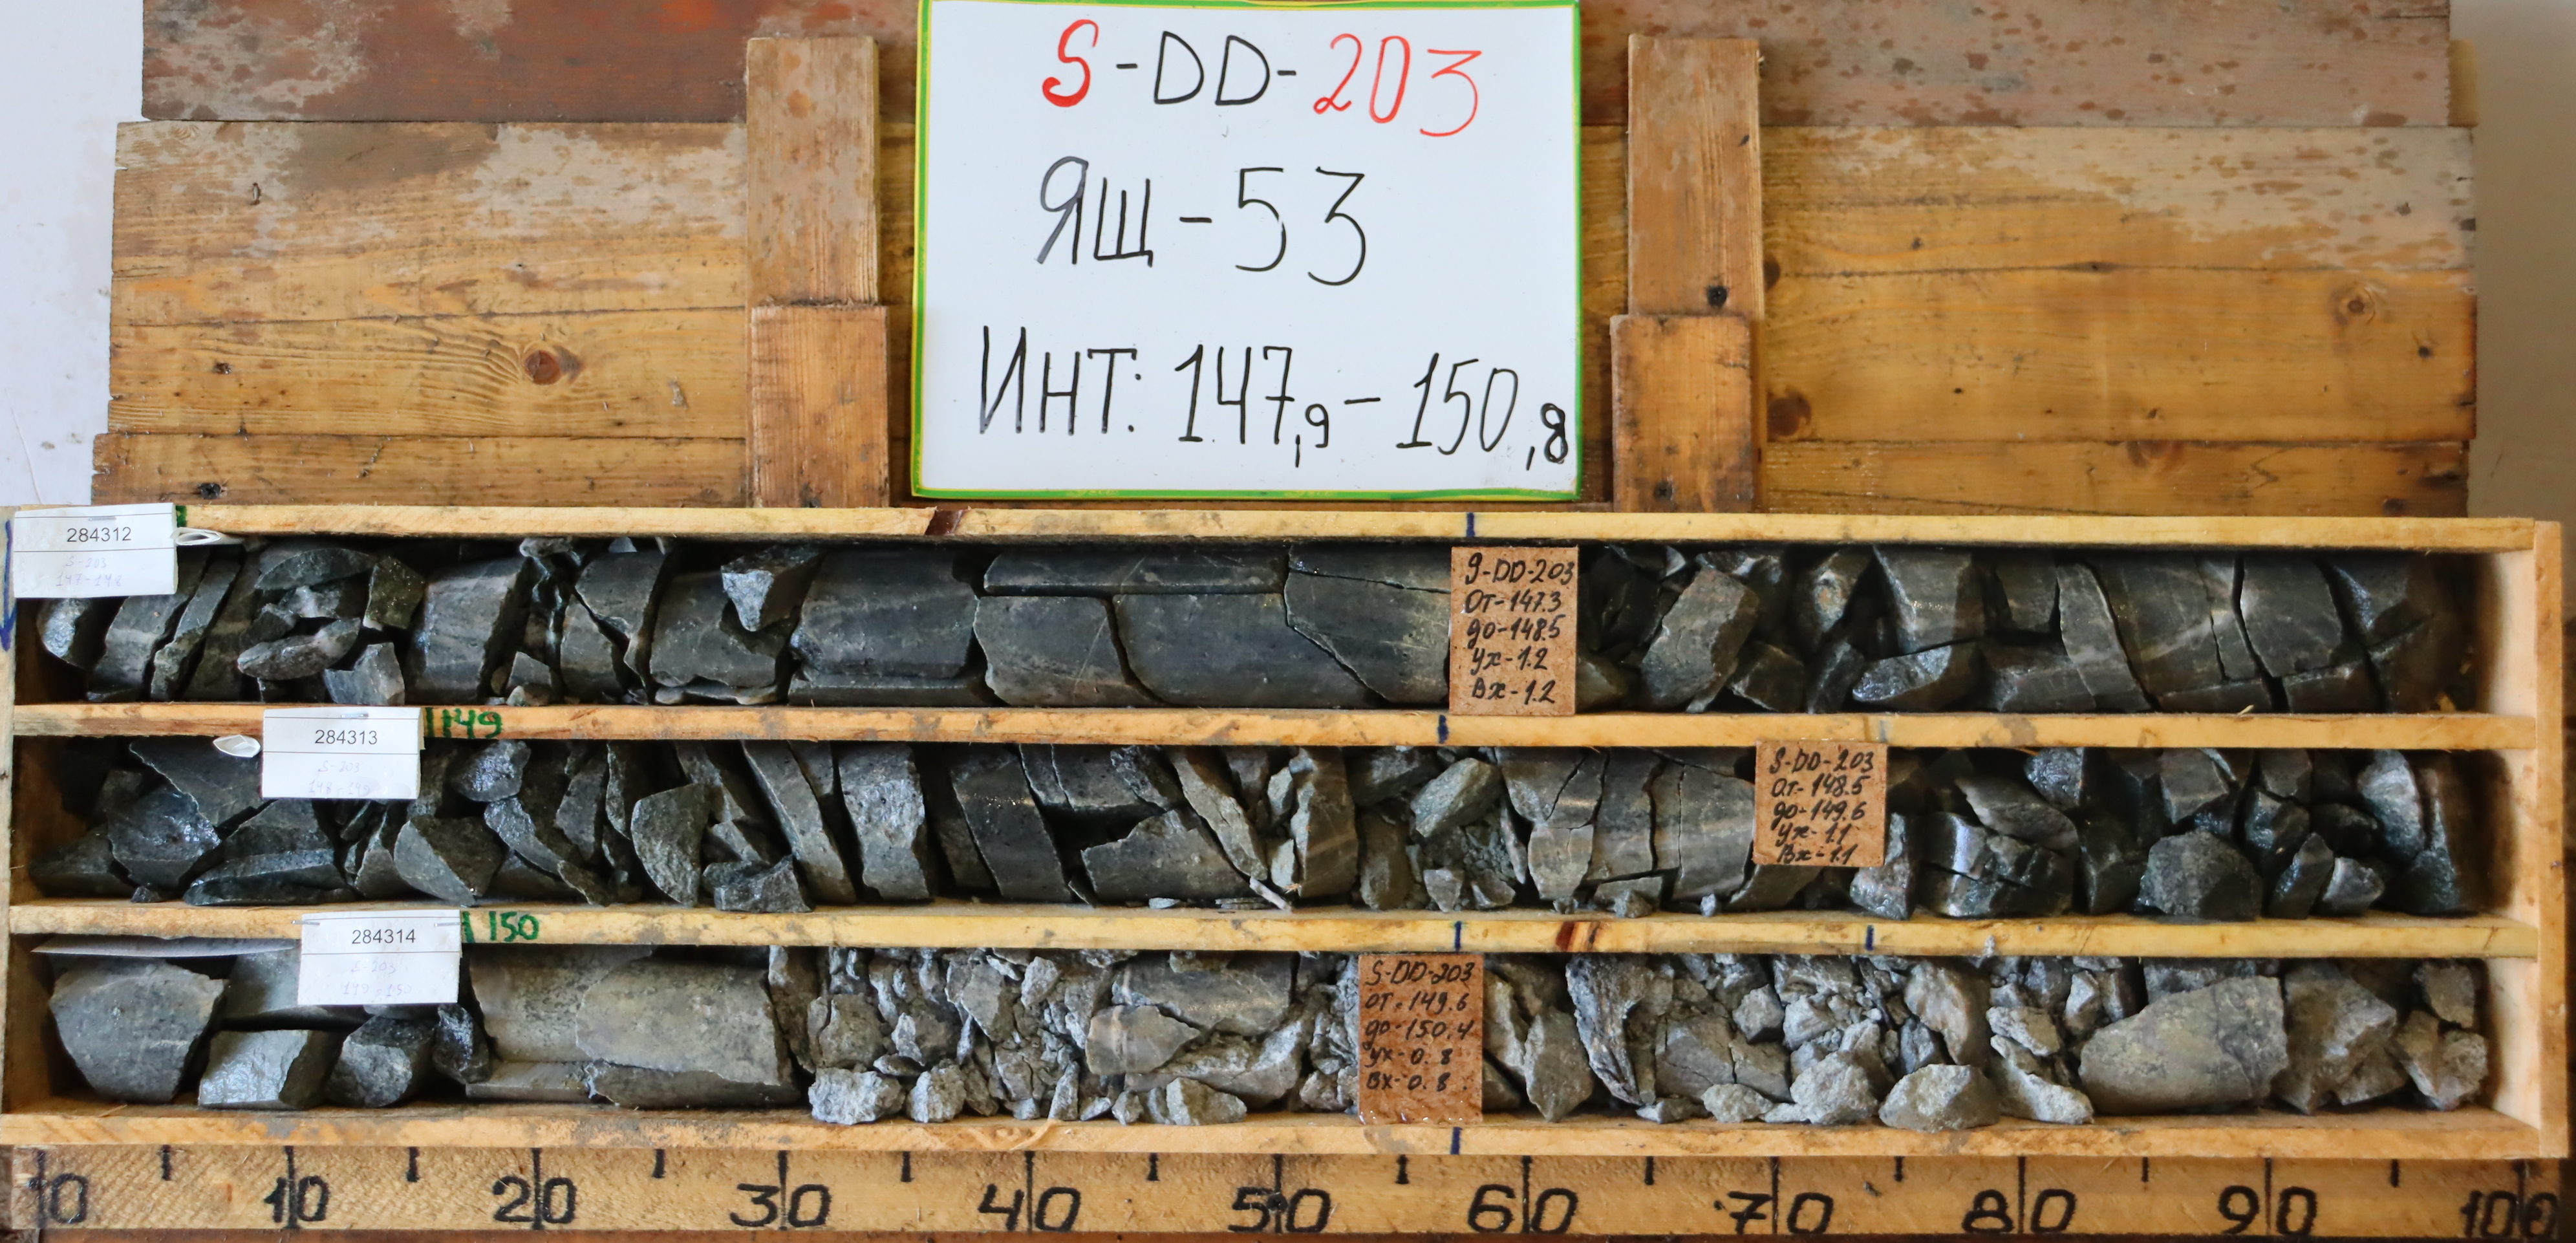 S-DD-203
ЯЩ-53
ИНТ: 147,9-150,8
284312
S-203
147-148
S-DD-203
От-147.3
до-148.5
ух-1.2
Вх-1.2
149
284313
S-203
148-149
S-DD-203
От-148.5
до-149.6
ух-1.1
Вх-1.1
150
284314
S-203
149-150
S-DD-203
от-149.6
до-150.4
ух-0.8
Вх-0.8
0 10 20 30 40 50 60 70 80 90 100